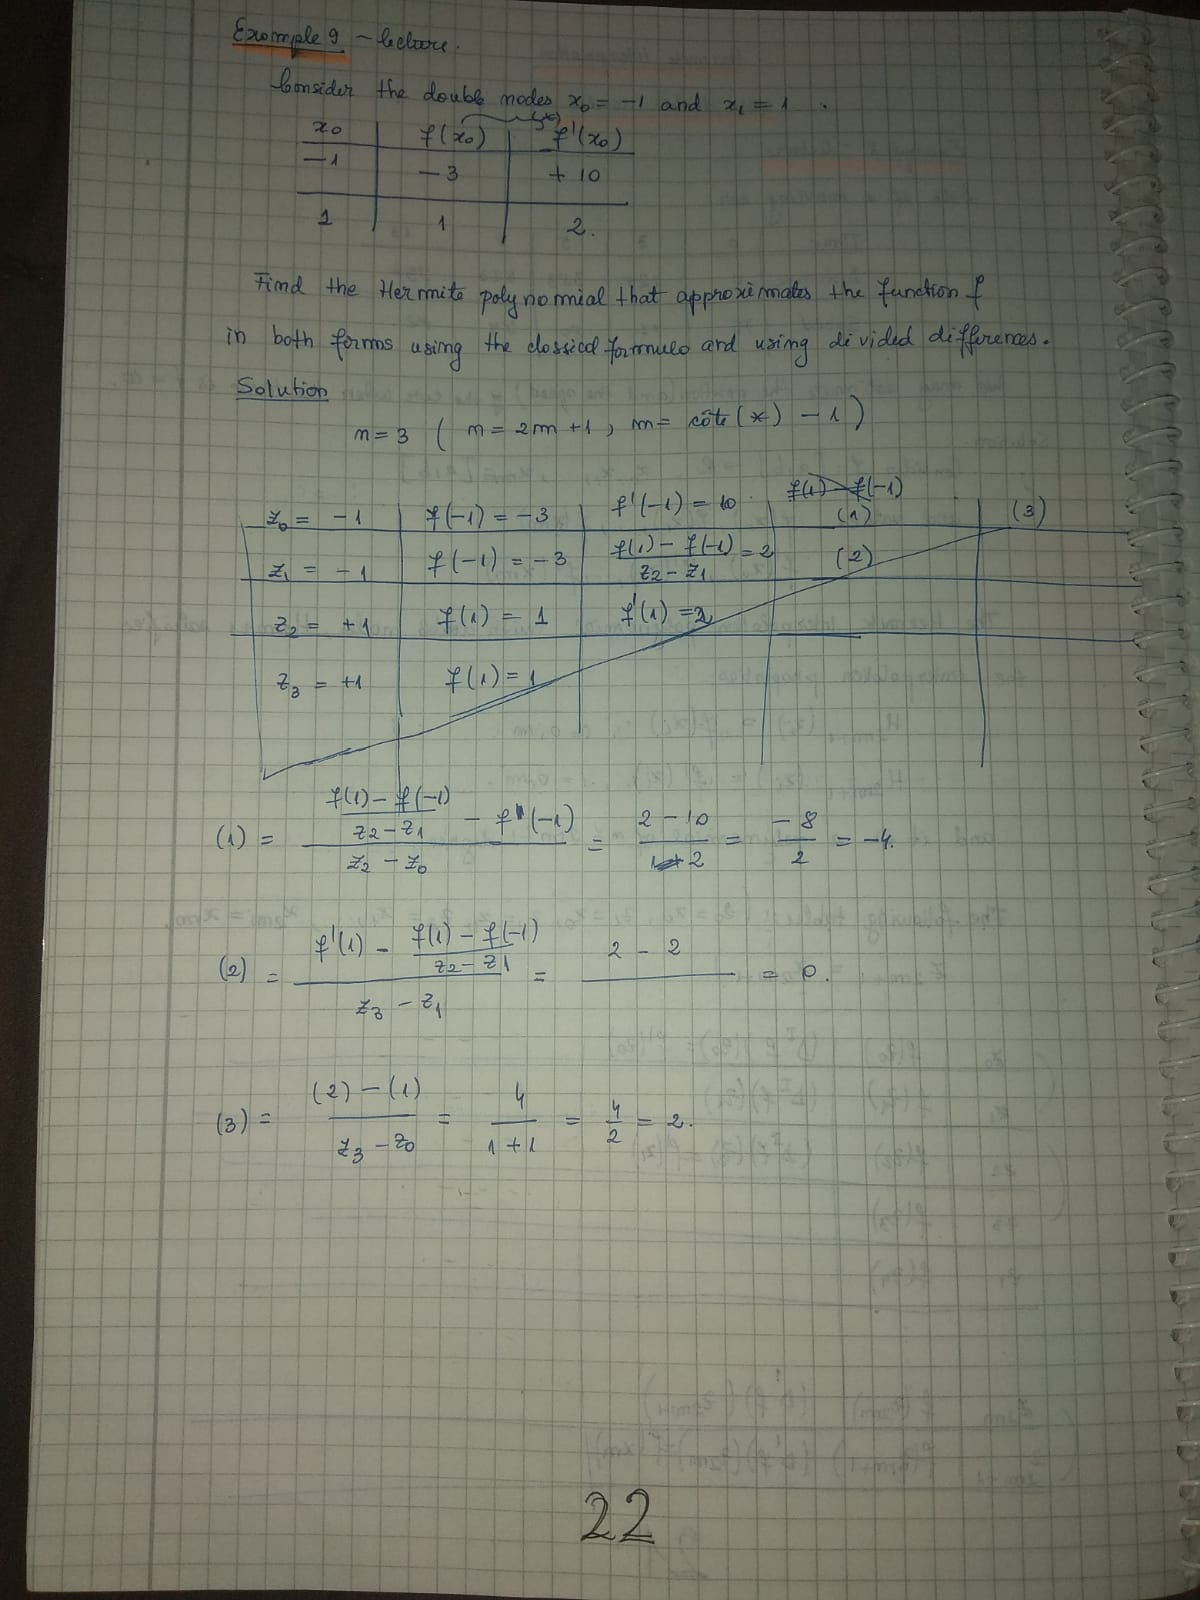 Example 9 - lecture.
Consider the double nodes x₀ = -1 and x₁ = 1.
x₀ f(x₀) f'(x₀)
-1 -3 +10
1 1 2.
Find the Hermite polynomial that approximates the function f
in both forms using the classical formula and using divided differences.
Solution
n=3 ( n = 2m+1, m = côte (*) - 1 )
z₀ = -1 f(-1) = -3 f'(-1) = 10 (1) (3)
z₁ = -1 f(-1) = -3 (f(1) - f(-1))/(z₂ - z₁) = 2 (2)
z₂ = +1 f(1) = 1 f'(1) = 2
z₃ = +1 f(1) = 1
(1) = ((f(1) - f(-1))/(z₂ - z₁) - f'(-1))/(z₂ - z₀) = (2 - 10)/2 = -8/2 = -4.
(2) = (f'(1) - (f(1) - f(-1))/(z₂ - z₁))/(z₃ - z₁) = 2 - 2 = 0.
(3) = ((2) - (1))/(z₃ - z₀) = 4/(1+1) = 4/2 = 2.
22